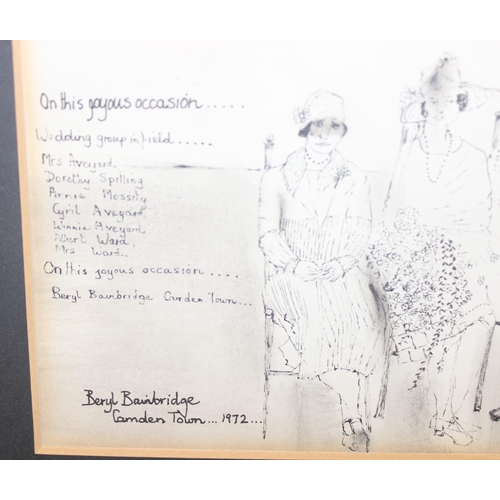 On this joyous occasion.....
Wedding group in field.....
Mrs Aveyard
Dorothy Spilling
Annie Mossity
Cyril Aveyard
Winnie Aveyard
Albert Ward.
Mrs Ward.
On this joyous occasion....
Beryl Bainbridge Camden Town...
Beryl Bainbridge
Camden Town...1972...